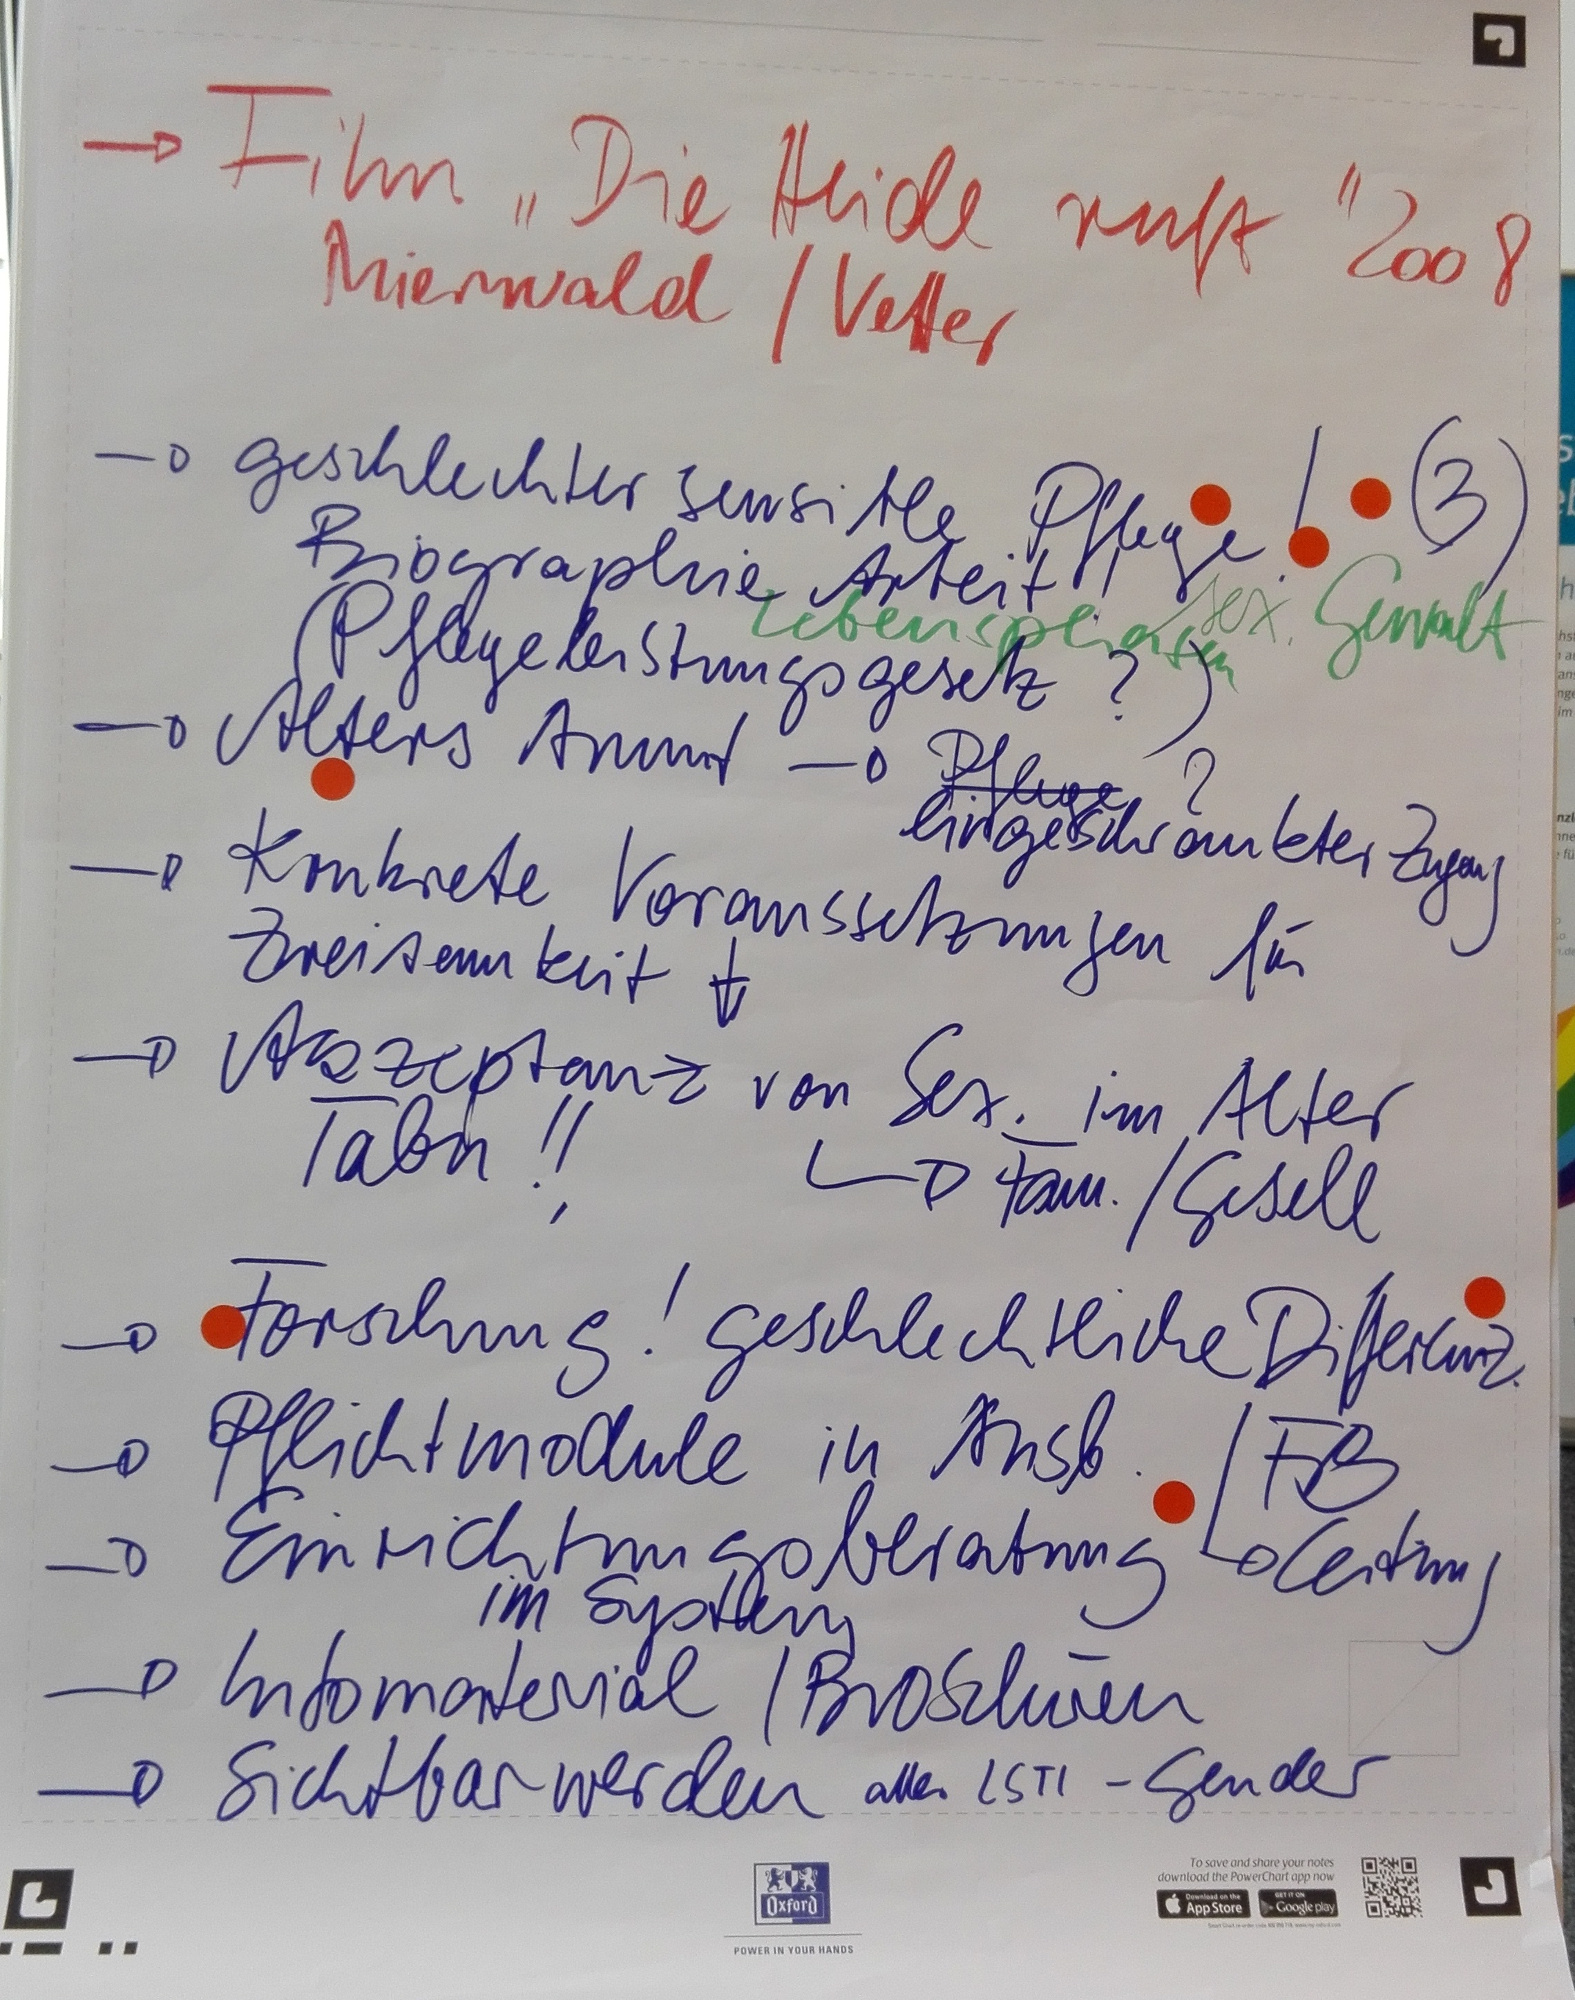 → Film „Die Heide ruft" 2008
Mierwald / Vetter
→ geschlechter sensible Pflege ! (3)
Biographie Arbeit!
Lebensphasen sex. Gewalt
(Pflegeleistungsgesetz ?)
→ Alters Armut → Pflege ?
eingeschränkter Zugang
→ Konkrete Voraussetzungen für
Zweisamkeit ↓
→ Akzeptanz von Sex. im Alter
Tabu !! ↳ fam. / Gesell
→ Forschung ! geschlechtliche Differenz.
→ Pflichtmodule in Ausb. / FB
→ Einrichtungsberatung → Leitung
im System
→ Infomaterial / Broschüren
→ Sichtbar werden aller LSTI - Gender
Oxford
POWER IN YOUR HANDS
To save and share your notes
download the PowerChart app now
Download on the App Store
GET IT ON Google play